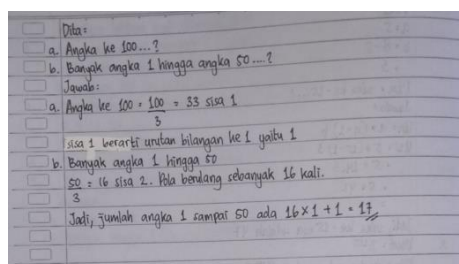 Dita =
a. Angka ke 100 ...?
b. Banyak angka 1 hingga angka 50 ....?
Jawab =
a. Angka ke 100 = 100/3 = 33 sisa 1
sisa 1 berarti urutan bilangan ke 1 yaitu 1
b. Banyak angka 1 hingga 50
50/3 = 16 sisa 2. Pola berulang sebanyak 16 kali.
Jadi, jumlah angka 1 sampai 50 ada 16 × 1 + 1 = 17